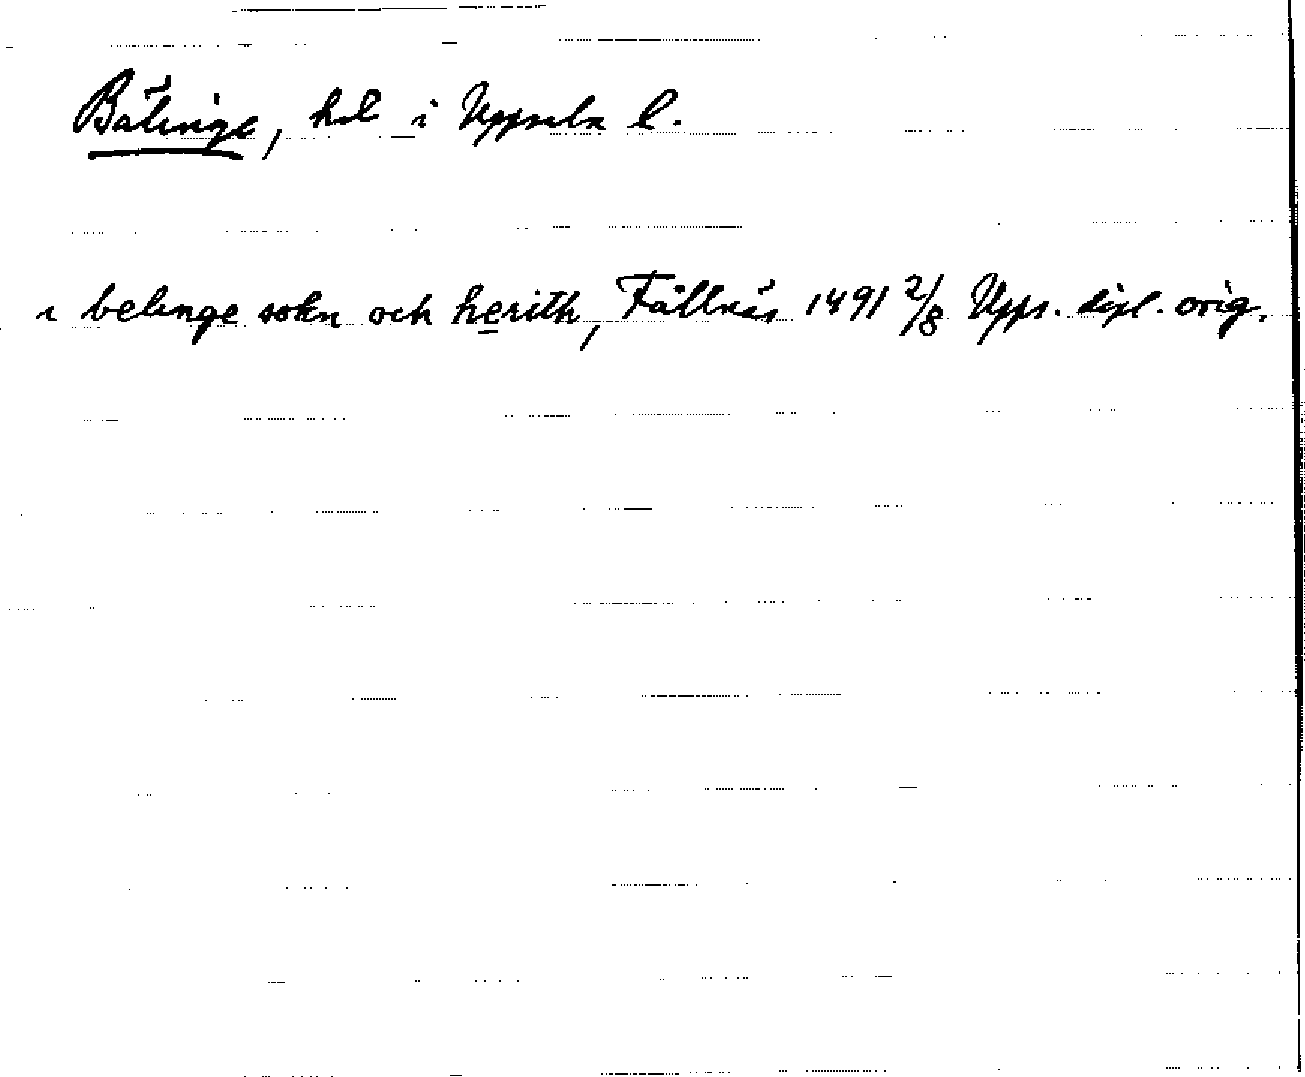 Bälinge, hd i Uppsala l.
i belinge sokn och herith, Fållnäs 1491 2/8 Upps. dipl. orig.